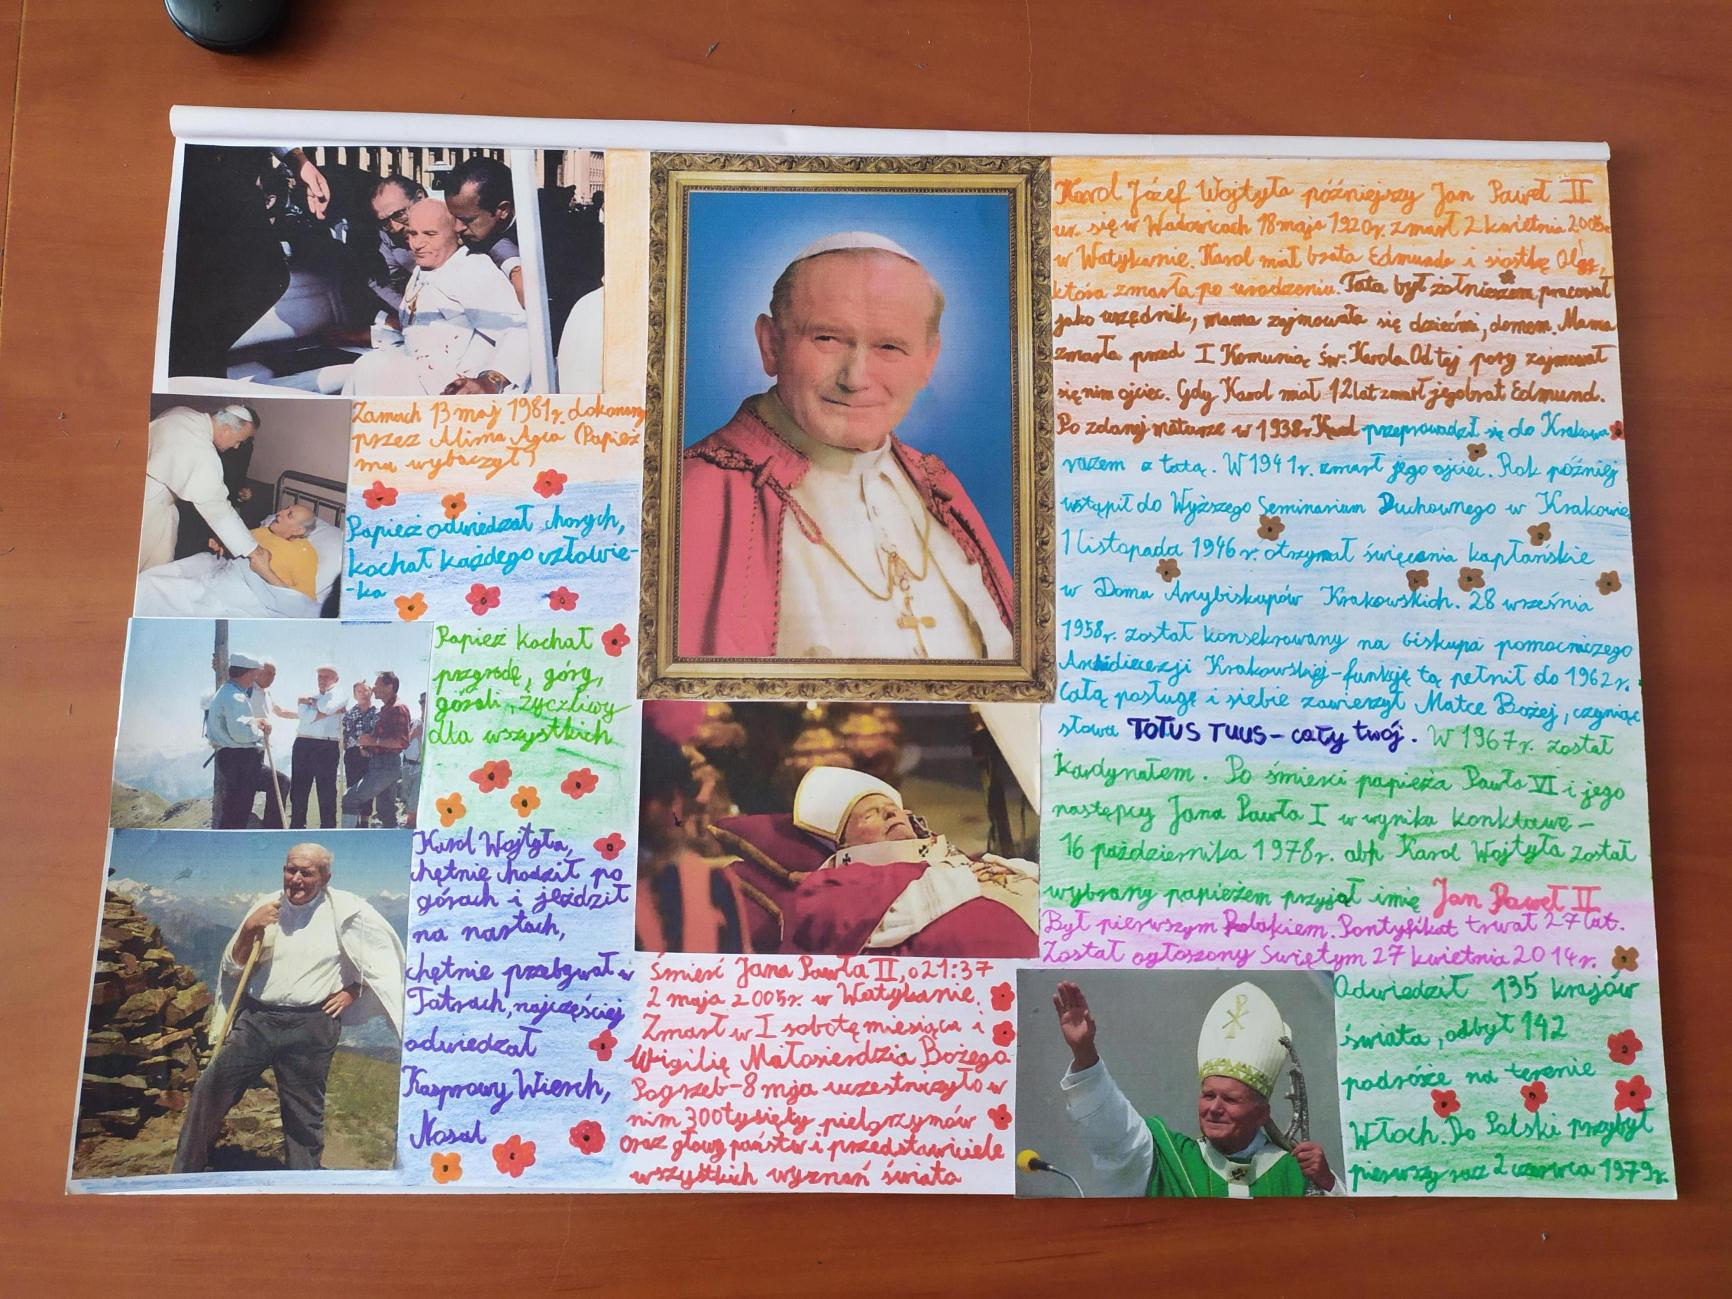 Zamach 13 maj 1981r. dokonany
przez Alima Agca (Papież
mu wybaczył)
Papież odwiedzał chorych,
kochał każdego człowie-
-ka
Papież kochał
przyrodę, góry,
górali, życzliwy
dla wszystkich
Karol Wojtyła,
chętnie chodził po
górach i jeździł
na nartach,
chętnie przebywał w
Tatrach, najczęściej
odwiedzał
Kasprowy Wierch,
Nosal
Śmierć Jana Pawła II, o 21:37
2 maja 2005r. w Watykanie.
Zmarł w I sobotę miesiąca i
Wigilię Miłosierdzia Bożego
Pogrzeb - 8 mja uczestniczyło w
nim 300 tysięty pielgrzymów
oraz głowy państw i przedstawiciele
wszystkich wyznań świata
Karol Józef Wojtyła późniejszy Jan Paweł II
ur. się w Wadowicach 18 maja 1920r. zmarł 2 kwietnia 2005r.
w Watykanie. Karol miał brata Edmunda i siostkę Olgę,
która zmarła po urodzeniu. Tata był żołnierzem pracował
jako urzędnik, mama zajmowała się dziećmi, domem. Mama
zmarła przed I Komunią św. Karola Od tej pory zajmował
się nim ojciec. Gdy Karol miał 12 lat zmarł jego brat Edmund.
Po zdanej maturze w 1938r. Karol przeprowadził się do Krakowa
razem z tatą. W 1941r. zmarł jego ojciec. Rok później
wstąpił do Wyższego Seminarium Duchownego w Krakowie
1 listopada 1946r. otrzymał święcenia kapłańskie
w Domu Arcybiskupów Krakowskich. 28 września
1958r. został konsekrowany na biskupa pomocniczego
Archidiecezji Krakowskiej - funkcję tą pełnił do 1962r.
Całą posługę i siebie zawierzył Matce Bożej, czyniąc
słowa TOTUS TUUS - cały twój. W 1967r. został
Kardynałem. Po śmierci papieża Pawła VI i jego
następcy Jana Pawła I w wyniku konklawe -
16 października 1978r. abp Karol Wojtyła został
wybrany papieżem przyjął imię Jan Paweł II
Był pierwszym Polakiem. Pontyfikat trwał 27 lat.
Został ogłoszony Świętym 27 kwietnia 2014r.
Odwiedził 135 krajów
świata, odbył 142
podróże na terenie
Włoch. Do Polski przybył
pierwszy raz 2 czerwca 1979r.